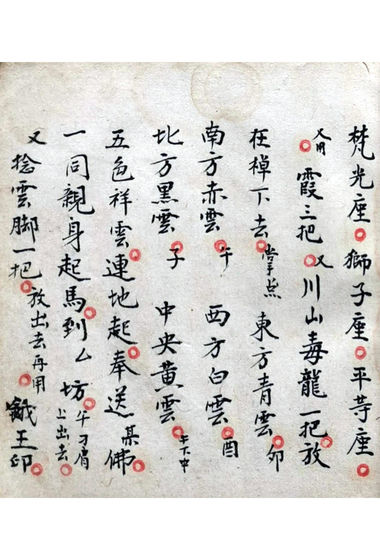 梵光座獅子座平等座
又用霞二把又川山毒龍一把放
在棹下去掌点東方青雲卯
南方赤雲午西方白雲酉
北方黑雲子中央黃雲午下中
五色祥雲連地起奉送某佛
一同親身起馬到厶坊午刁肩上出去
又捻雲脚一把放出去再用王印